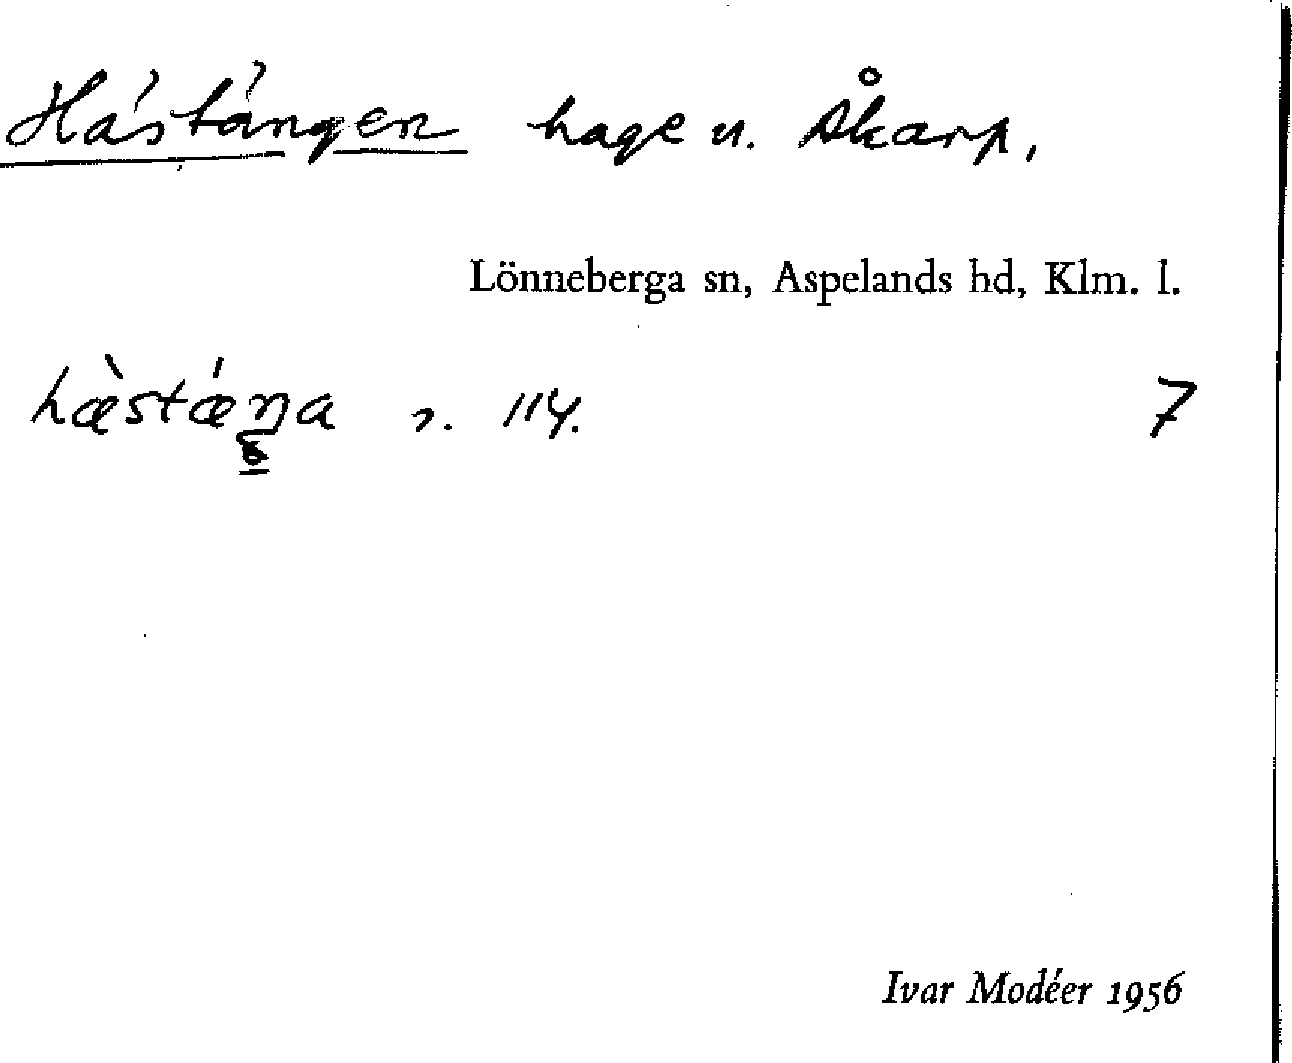 Hästängen hage u. Åkarp,
Lönneberga sn, Aspelands hd, Klm. l.
hæ̀stǽŋa s. 114. 7
Ivar Modéer 1956